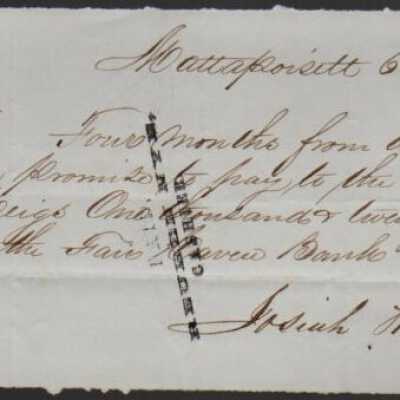 Mattapoisett 6
Four months from
promise to pay to the
One thousand &
the Fair Haven Bank
Josiah